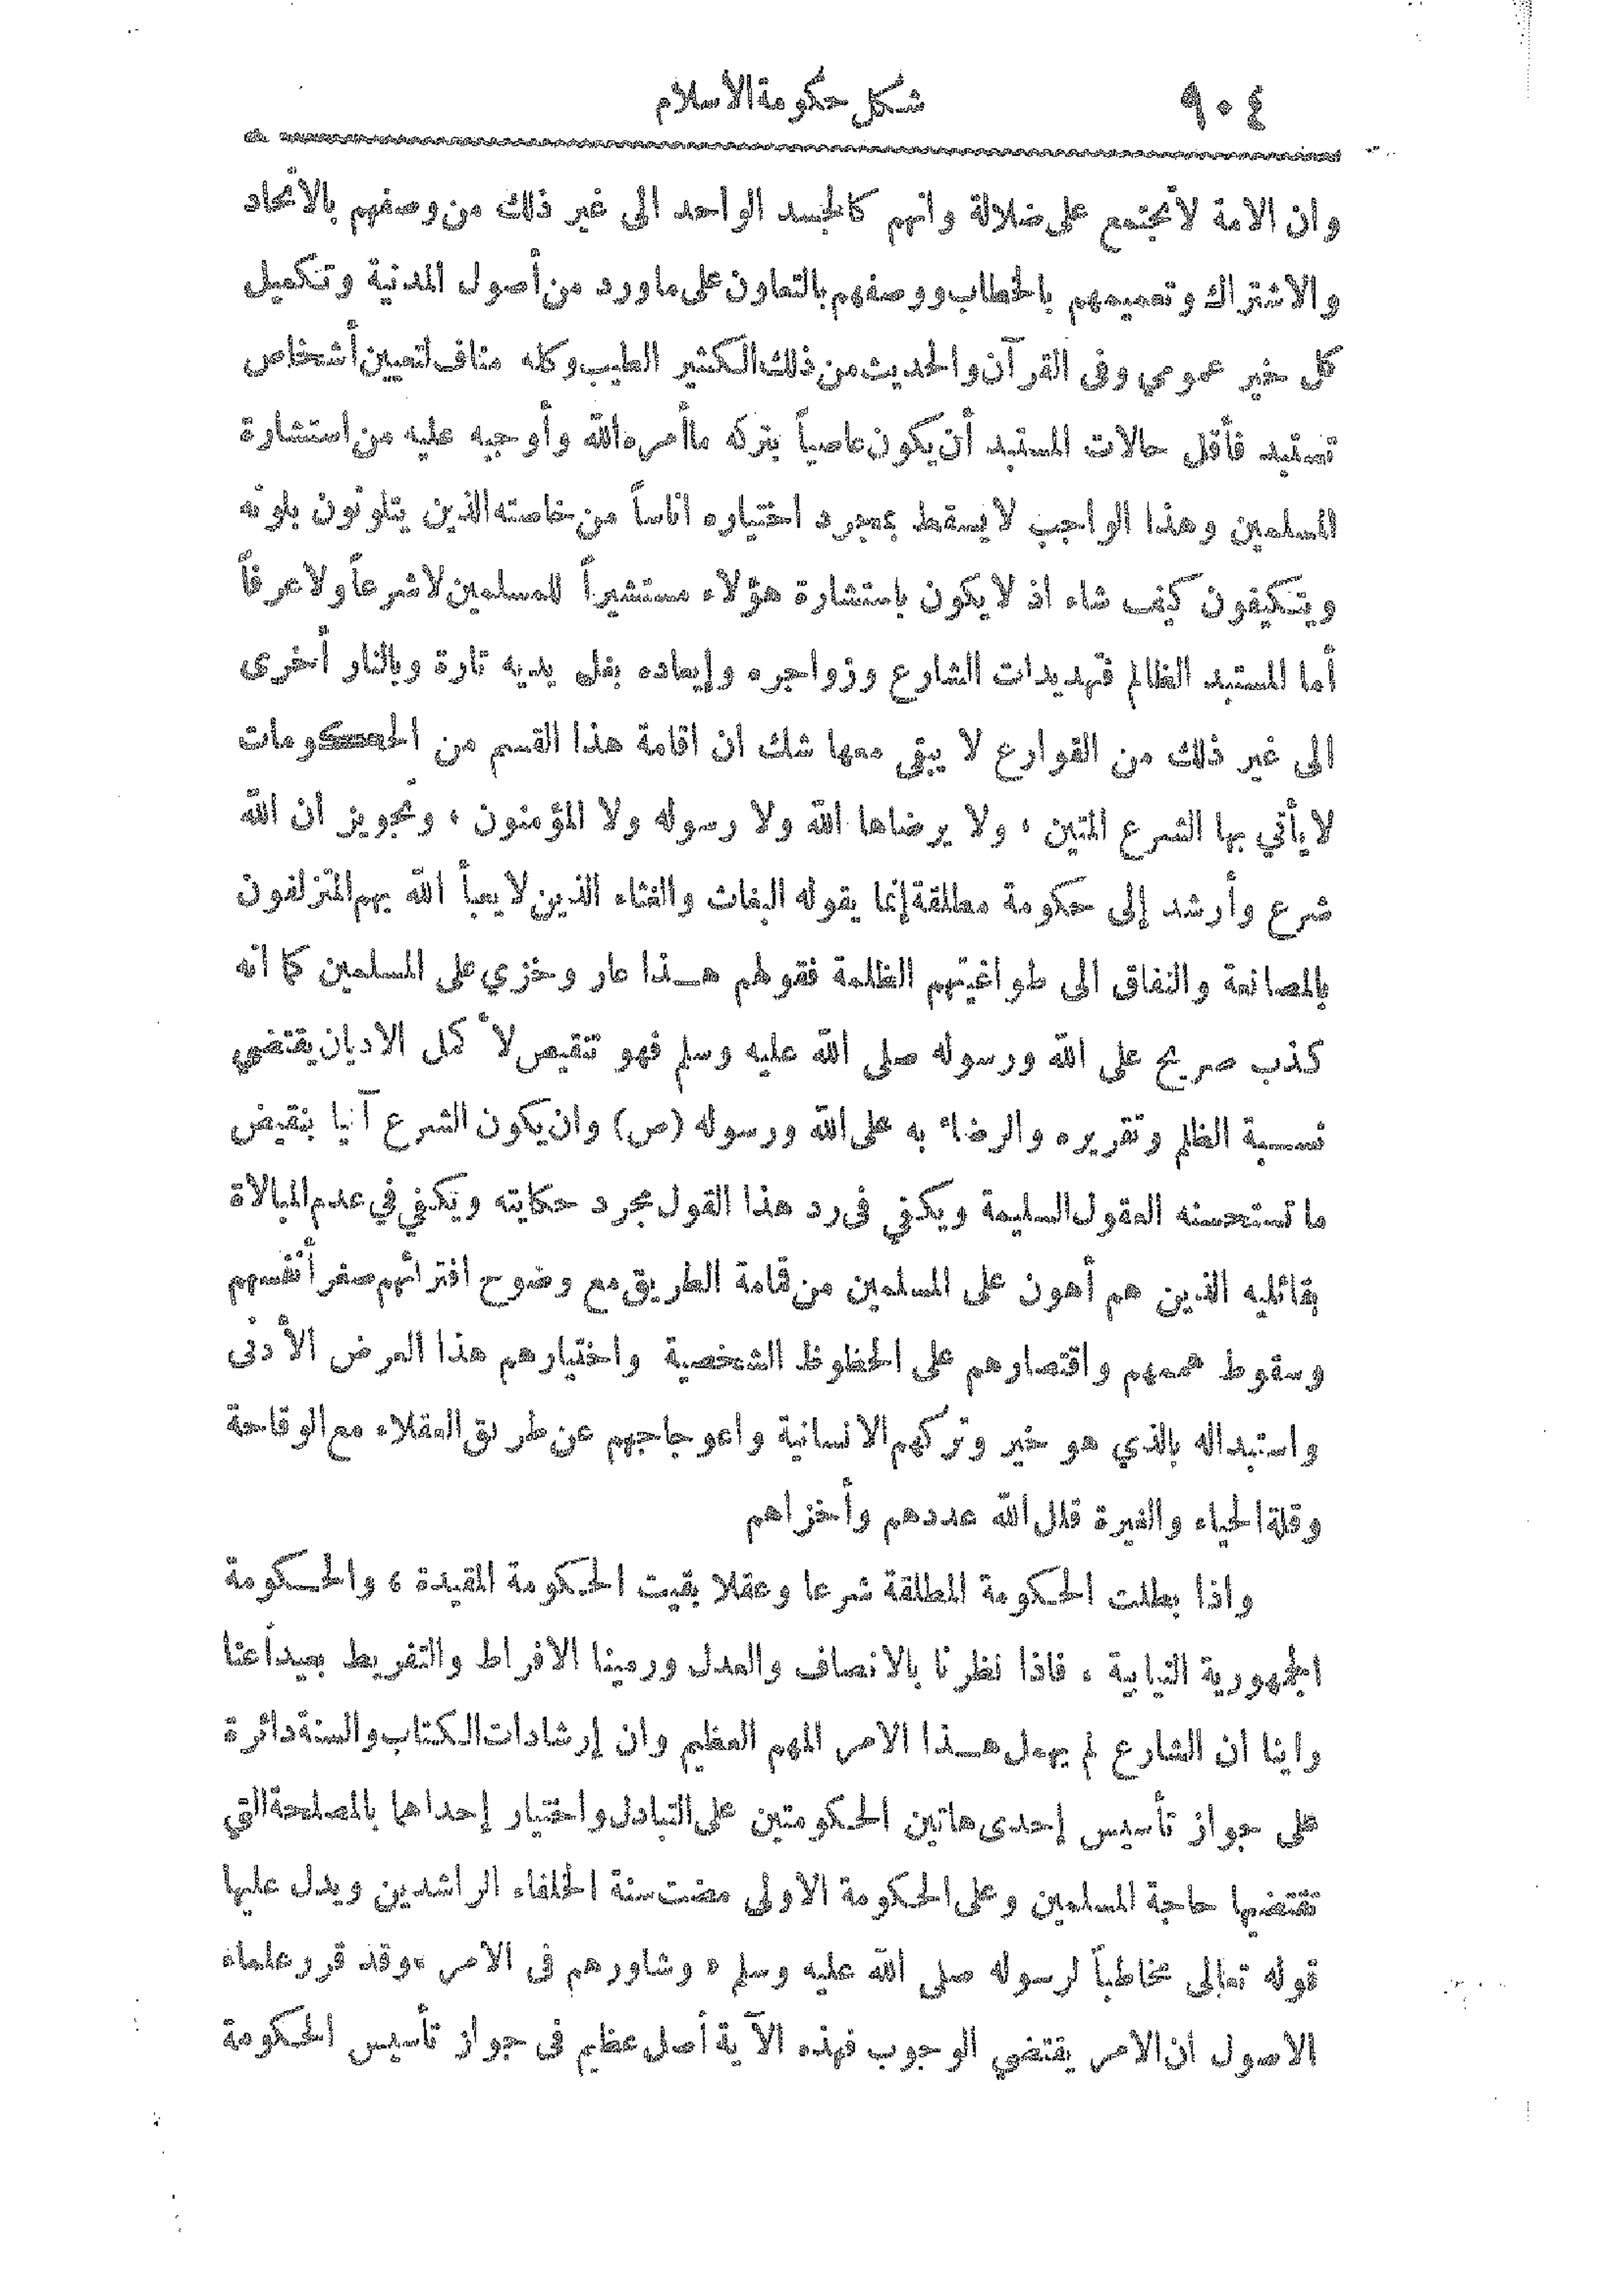 ٩٠٤ شكل حكومة الاسلام
وان الامة لا تجتمع على ضلالة وانهم كالجسد الواحد الى غير ذلك من وصفهم بالاتحاد
والاشتراك وتعميمهم بالخطاب ووصفهم بالتعاون على ما ورد من أصول المدنية وتكميل
كل خير عمومي وفى القرآن والحديث من ذلك الكثير الطيب وكله مناف لتعيين أشخاص
تستبد فأقل حالات المستبد أن يكون عاصياً بتركه ما أمره الله وأوجبه عليه من استشارة
المسلمين وهذا الواجب لا يسقط بمجرد اختياره اناساً من خاصته الذين يتلونون بلونه
ويتكيفون كيف شاء اذ لا يكون باستشارة هؤلاء مستشيراً للمسلمين لا شرعاً ولا عرفاً
أما المستبد الظالم فتهديدات الشارع وزواجره وإيعاده بغل يديه تارة وبالنار أخرى
الى غير ذلك من القوارع لا يبقى معها شك ان اقامة هذا القسم من الحكومات
لا يأتي بها الشرع المتين ، ولا يرضاها الله ولا رسوله ولا المؤمنون ، وتجويز ان الله
شرع وأرشد إلى حكومة مطلقة إنما يقوله البغاث والغثاء الذين لا يعبأ الله بهم المتزلفون
بالمصانعة والنفاق الى طواغيتهم الظلمة فقولهم هذا عار وخزي على المسلمين كما انه
كذب صريح على الله ورسوله صلى الله عليه وسلم فهو تنقيص لأ كمل الاديان يقتضي
نسبة الظلم وتقريره والرضاء به على الله ورسوله (ص) وان يكون الشرع آتيا بنقيض
ما تستحسنه العقول السليمة ويكفي فى رد هذا القول مجرد حكايته ويكفي في عدم المبالاة
بقائليه الذين هم أهون على المسلمين من قامة الطريق مع وضوح افترائهم صغر أنفسهم
وسقوط هممهم واقتصارهم على الحظوظ الشخصية واختيارهم هذا العرض الأدنى
واستبداله بالذي هو خير وتركهم الانسانية واعوجاجهم عن طريق العقلاء مع الوقاحة
وقلة الحياء والغيرة قلل الله عددهم وأخزاهم
واذا بطلت الحكومة المطلقة شرعا وعقلا بقيت الحكومة المقيدة ، والحكومة
الجمهورية النيابية . فاذا نظرنا بالانصاف والعدل ورمينا الافراط والتفريط بعيداً عنا
راينا ان الشارع لم يهمل هذا الامر المهم العظيم وان إرشادات الكتاب والسنة دائرة
على جواز تأسيس إحدى هاتين الحكومتين على التبادل واختيار إحداهما بالمصلحة التي
تقتضيها حاجة المسلمين وعلى الحكومة الاولى مضت سنة الخلفاء الراشدين ويدل عليها
قوله تعالى مخاطباً لرسوله صلى الله عليه وسلم « وشاورهم فى الامر » وقد قرر علماء
الاصول ان الامر يقتضي الوجوب فهذه الآية أصل عظيم فى جواز تأسيس الحكومة